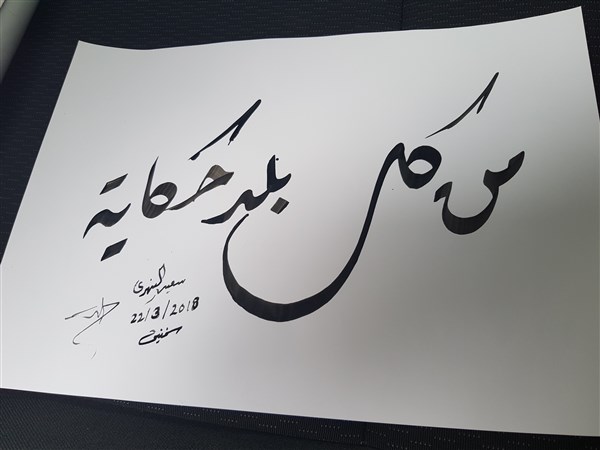 من كل بلد حكاية
سعيد النهري
22/3/2018
سخنين